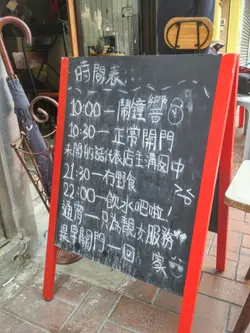 時間表:
10:00 — 鬧鐘響
10:30 — 正常開門
未開的話代表店主溝囡中
21:30 — 冇野食
22:00 — 飲水吧啦!
通宵 — 只為靚女服務
提早關門 — 回家